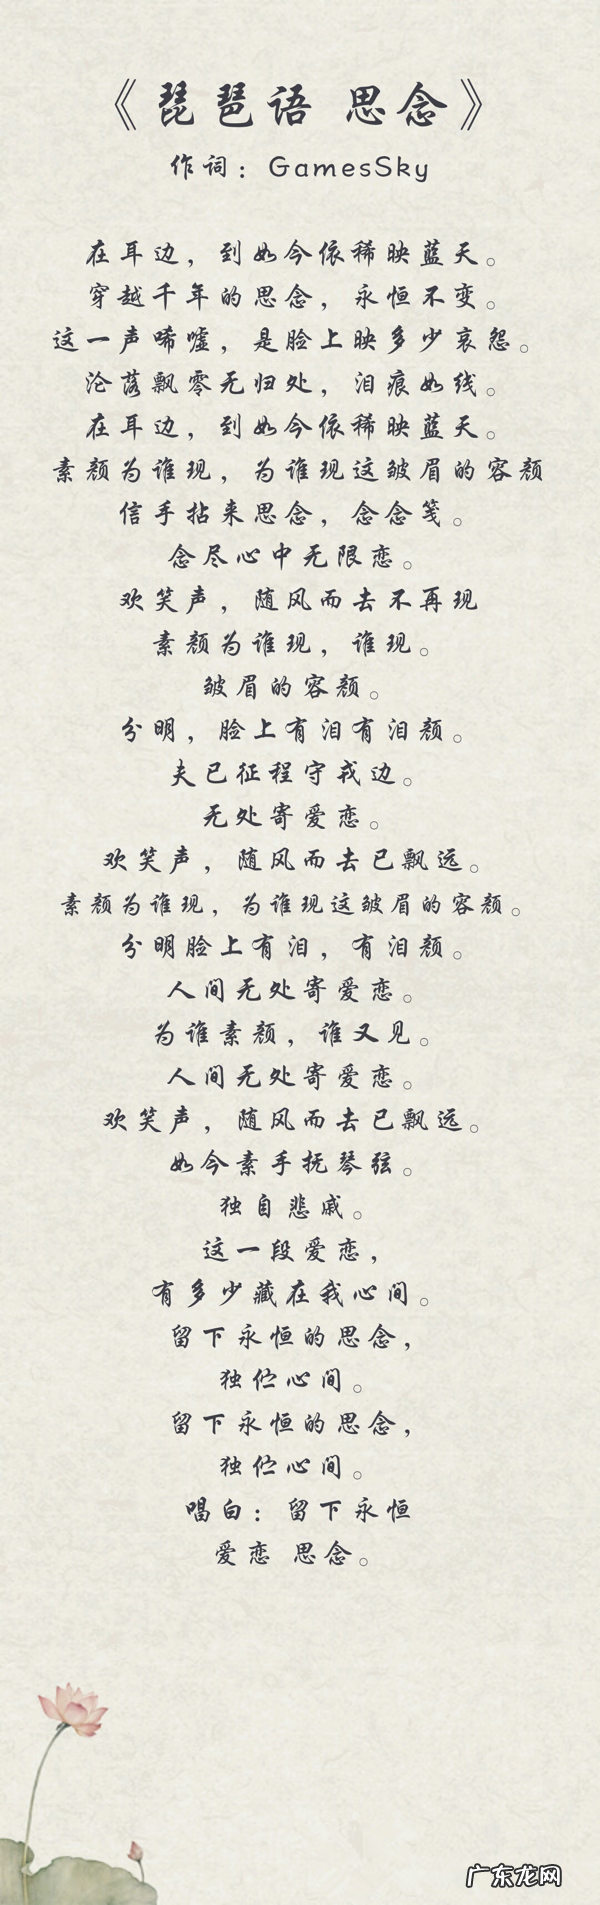 《琵琶语 思念》
作词：GamesSky
在耳边，到如今依稀映蓝天。
穿越千年的思念，永恒不变。
这一声唏嘘，是脸上映多少哀怨。
沦落飘零无归处，泪痕如线。
在耳边，到如今依稀映蓝天。
素颜为谁现，为谁现这皱眉的容颜
信手拈来思念，念念笺。
念尽心中无限恋。
欢笑声，随风而去不再现
素颜为谁现，谁现。
皱眉的容颜。
分明，脸上有泪有泪颜。
夫已征程守戎边。
无处寄爱恋。
欢笑声，随风而去已飘远。
素颜为谁现，为谁现这皱眉的容颜。
分明脸上有泪，有泪颜。
人间无处寄爱恋。
为谁素颜，谁又见。
人间无处寄爱恋。
欢笑声，随风而去已飘远。
如今素手抚琴弦。
独自悲戚。
这一段爱恋，
有多少藏在我心间。
留下永恒的思念，
独伫心间。
留下永恒的思念，
独伫心间。
唱白：留下永恒
爱恋 思念。
广东龙网